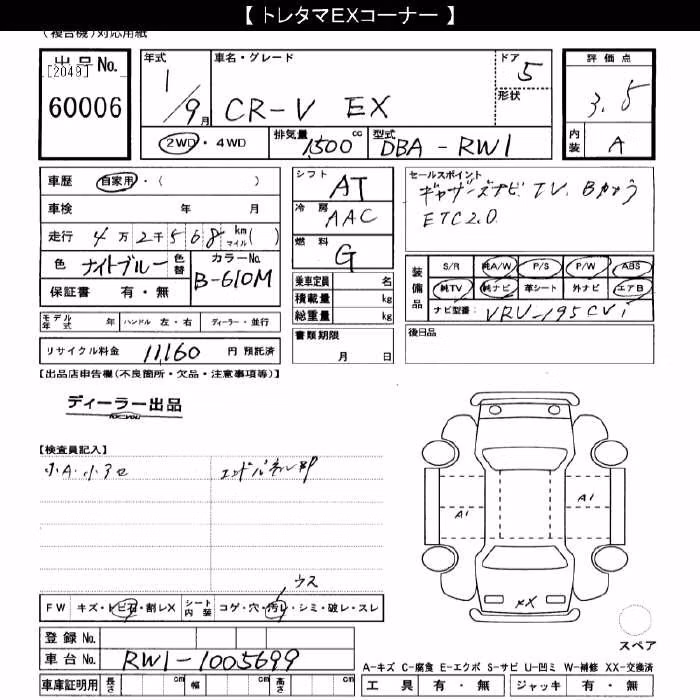 【 トレタマEXコーナー 】
(複合機)対応用紙
出品No.
[2049]
60006
年式 1/9月
車名・グレード CR-V EX
ドア 5
形状
評価点 3.5
内装 A
2WD・4WD
排気量 1500 cc
型式 DBA-RW1
車歴 自家用・( )
車検 年 月
走行 4万2千568 km マイル( )
色 ナイトブルー 色替
カラーNo. B-610M
保証書 有・無
シフト AT
冷房 AAC
燃料 G
乗車定員 名
積載量 kg
総重量 kg
書類期限
月 日
セールスポイント
ギャザーズナビ TV. Bカメラ
ETC2.0
装備品
S/R 純A/W P/S P/W ABS
純TV 純ナビ 革シート 外ナビ エアB
ナビ型番:
後日品
モデル年式 年 ハンドル 左・右 ディーラー・並行
リサイクル料金 11,160 円 預託済
【出品店申告欄(不良箇所・欠品・注意事項等)】
ディーラー出品
【検査員記入】
小A.小キセ
A1
A1
X
ウス
FW キズ・トビ石・割レX シート内装 コゲ・穴・汚レ・シミ・破レ・スレ
登録No.
車台No. RW1-1005699
車庫証明用 長さ cm 幅 cm 高さ cm
スペア
A-キズ C-腐食 E-エクボ S-サビ U-凹ミ W-補修 XX-交換済
工具 有・無 ジャッキ 有・無